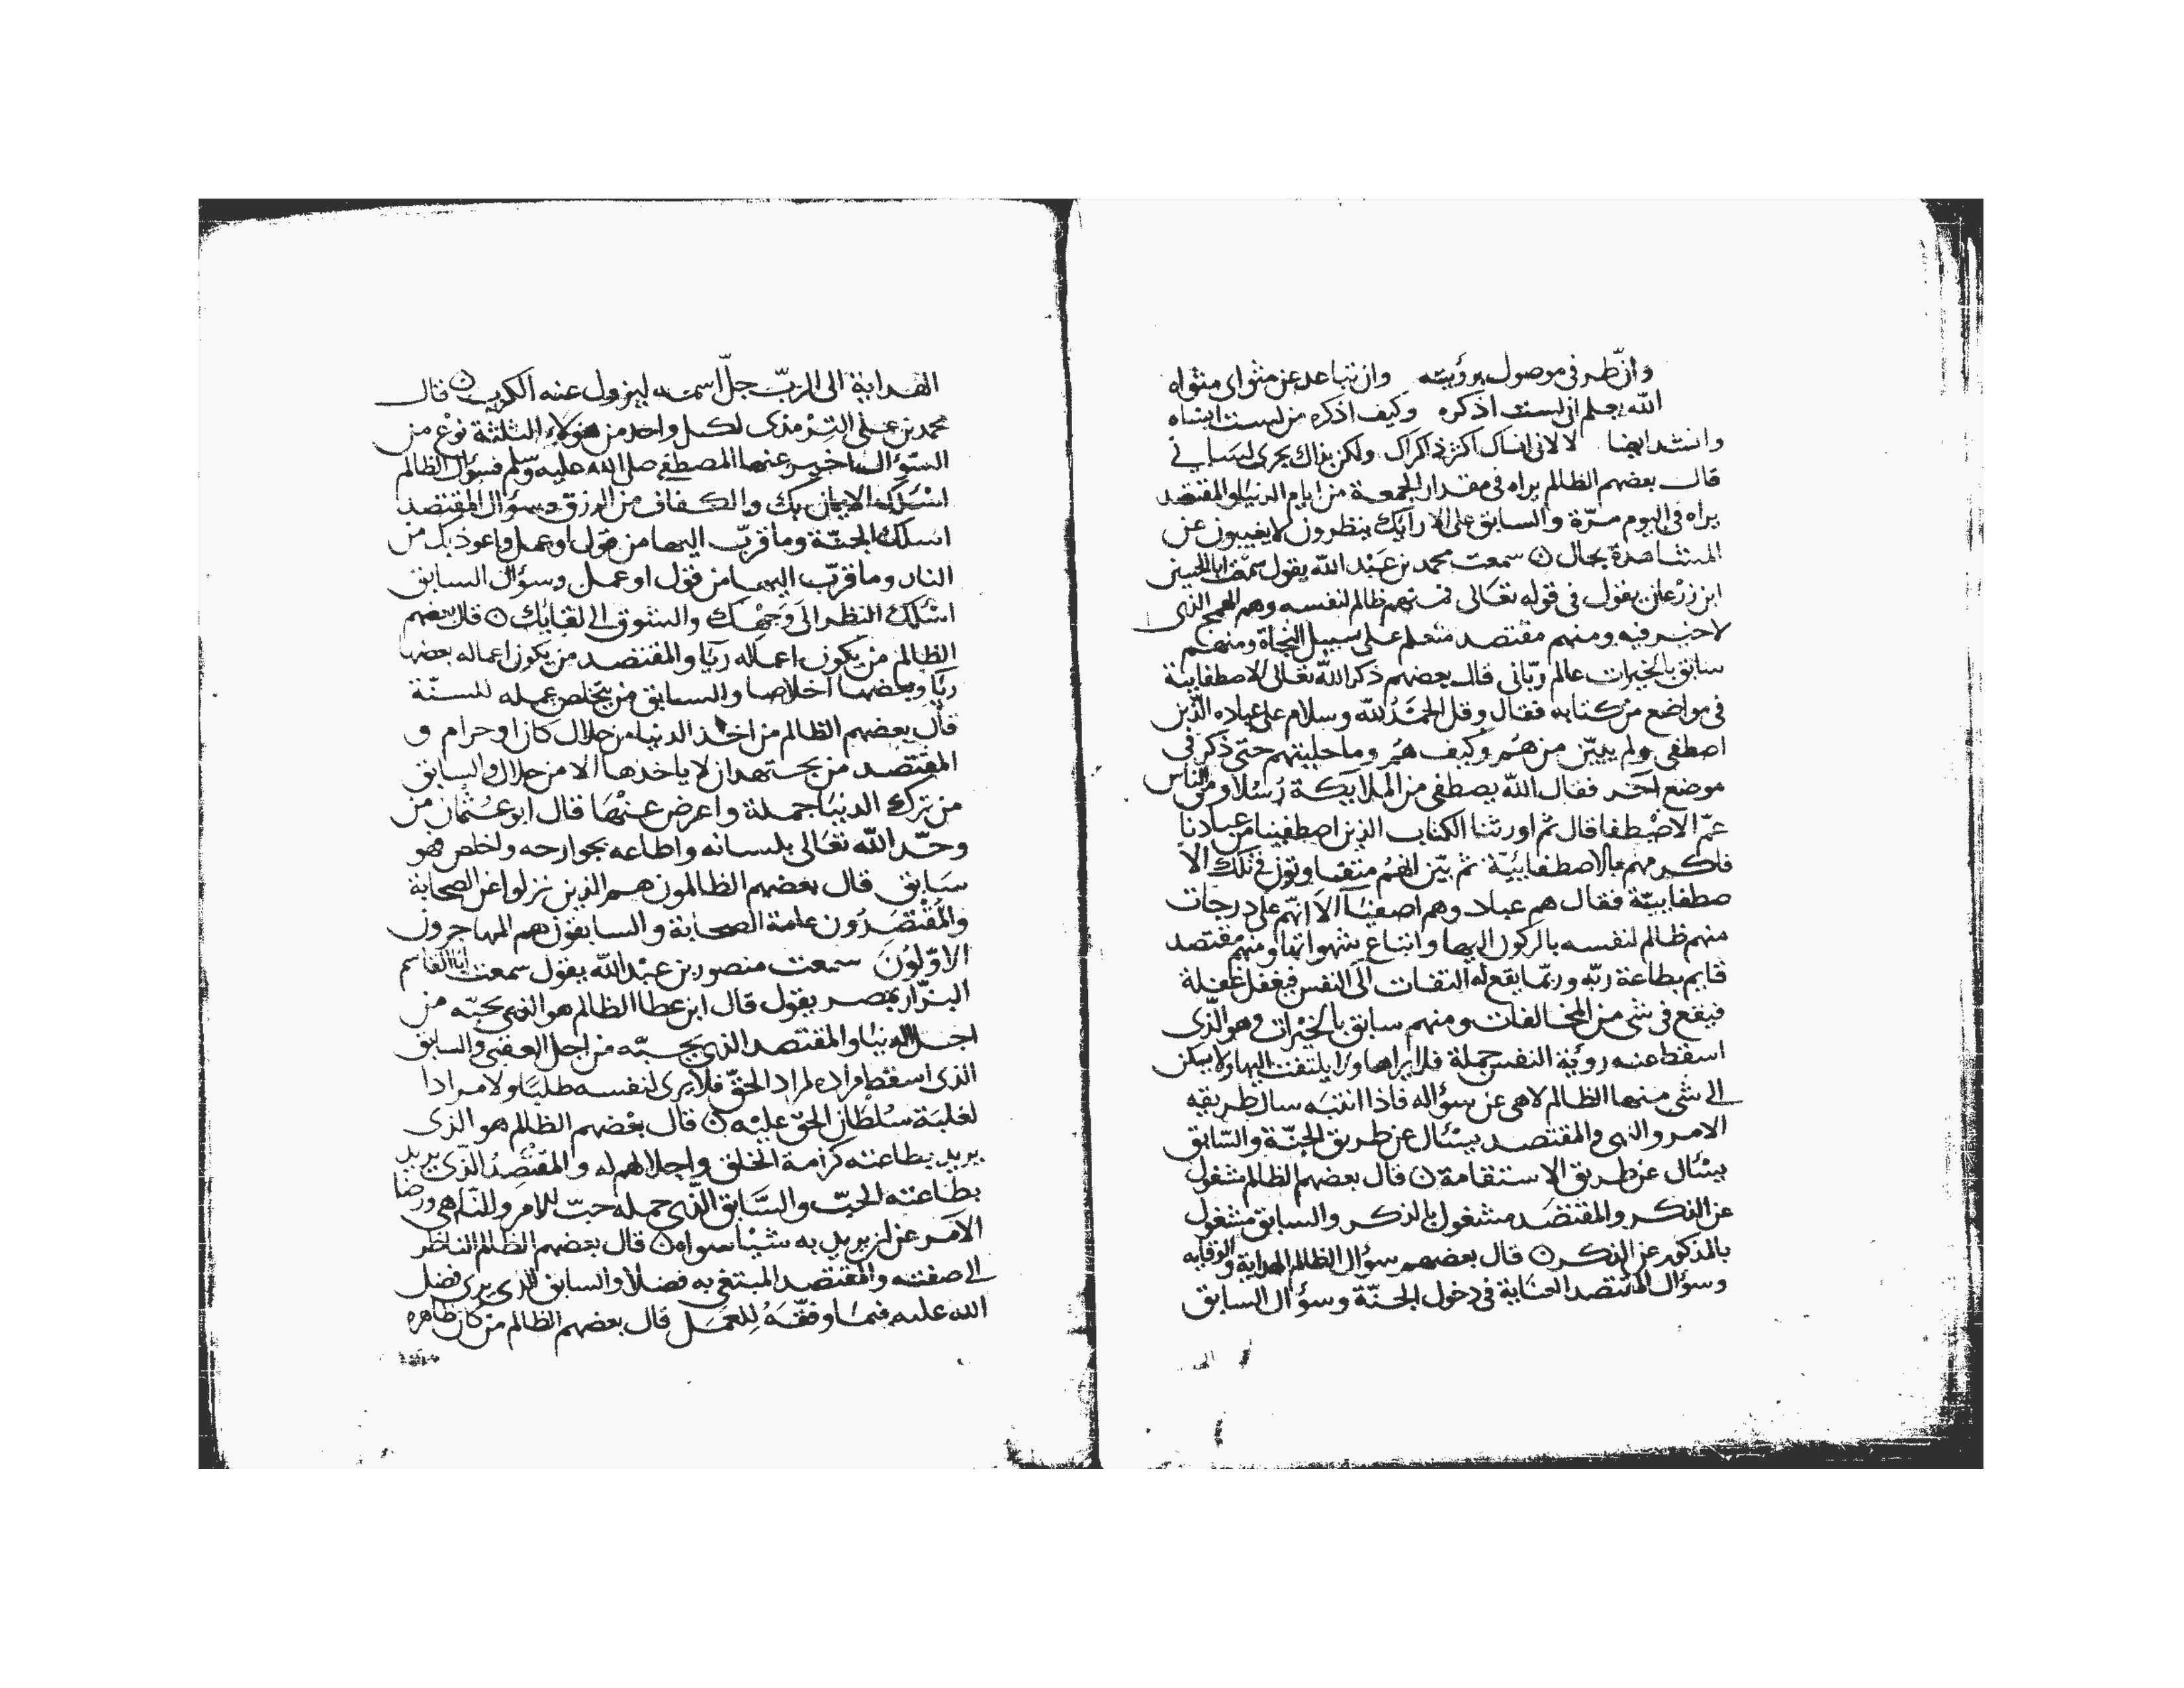 وانظر في موصول برؤيته وان تباعد عن مثواى مثواه
الله يعلم انى لست اذكره وكيف اذكره من لست انساه
وانشد ايضا لا لانى انساك اكثر ذاكراك ولكن بذاك يجرى لسانى
قال بعضهم الظالم يراه فى مقدار الجمعة من ايام الدنيا والمقتصد
يراه فى اليوم مرّة والسابق على الارايك ينظرون لا يغيبون عن
المشاهدة بحال سمعت محمد بن عبد الله يقول سمعت ابا الحسين
ابن زرعان يقول فى قوله تعالى فمنهم ظالم لنفسه وهم الهمج الذى
لا خير فيه ومنهم مقتصد متعلم على سبيل النجاة ومنهم
سابق بالخيرات عالم ربّانى قال بعضهم ذكر الله تعالى الاصطفايية
فى مواضع من كتابه فقال وقل الحمد لله وسلام على عباده الذين
اصطفى ولم يبيّن من هم وكيف هم وما حليتهم حتى ذكر فى
موضع آخر فقال الله يصطفى من الملايكة رسلا ومن الناس
عمّ الاصطفا قال ثم اورثنا الكتاب الذين اصطفينا من عبادنا
فاكبر مهم بالاصطفاييّة ثم بيّن انهم متفاوتون فى تلك الا
صطفاييّة فقال هم عباد وهم اصفيا الا انهم على درجات
منهم ظالم لنفسه بالركون اليها واتباع شهواتها ومنهم مقتصد
قايم بطاعة ربّه وربّما يقع له التفات الى النفس فيغفل غفلة
فيقع فى شى من المخالفات ومنهم سابق بالخيرات وهو الذى
اسقط عنه روية النفس جملة فلا يراها ولا يلتفت اليها ولا يسكن
الى شى منها الظالم لاهى عن سؤاله فاذا انتبه سال طريقه
الامر والنهى والمقتصد يسئال عن طريق الجنّة والسّابق
يسئال عن طريق الاستقامة قال بعضهم الظالم مشغول
عن الفكر والمقتصد مشغول بالذكر والسابق مشغول
بالمذكور عن الذكر قال بعضهم سؤال الظالم الهداية والوقايه
وسؤال المقتصد العناية فى دخول الجنّة وسؤال السابق
الى الربّ جلّ اسمه ليزول عنه الكرب قال
محمد بن على الترمذى لكل واحد من هولاء الثلثة نوع من
السؤال اخبر عنها المصطفى صلى الله عليه وسلم فسؤال الظالم
اسئلك الايمان بك والكفاف من الرزق وسؤال المقتصد
اسلك الجنّة وما قرّب اليها من قول او عمل واعوذ بك من
النار وما قرّب اليها من قول او عمل وسؤال السابق
اسئلك النظر الى وجهك والشوق الى لقايك قال بعضهم
الظالم من يكون اعماله ريا والمقتصد من يكون اعماله بعضها
ريا وبعضها اخلاصا والسابق من يخلص عمله للسنّة
قال بعضهم الظالم من اخذ الدنيا من حلال كان او حرام و
المقتصد من يجتهد ان لا ياخذها الا من حلال والسابق
من ترك الدنيا جملة واعرض عنها قال ابو عثمان من
وحّد الله تعالى بلسانه واطاعه بجوارحه واخلص فهو
سابق قال بعضهم الظالمون هم الذين نزلوا عن الصحابة
والمقتصدون عامة الصحابة والسابقون هم المهاجرون
الاوّلون سمعت منصور بن عبد الله يقول سمعت ابا القاسم
البزّار بمصر يقول قال ابن عطا الظالم هو الذى يحبّه من
اجل الدنيا والمقتصد الذى يحبّه من اجل العقبى والسابق
الذى اسقط مراده لمراد الحقّ فلا يرى لنفسه طلبا ولا مرادا
لغلبة سلطان الحق عليه قال بعضهم الظالم هو الذى
يريد بطاعته كرامة الخلق واجلالهم له والمقتصد الذى يريد
بطاعته الحبّ والسّابق الذى حمله حبّ للامر والنّاهى ورضا
الامر عن ان يريد به شيا سواه قال بعضهم الظالم الناظر
الى صفته والمقتصد المبتغى به فضلا والسابق الذى يرى فضل
الله عليه فيما وفّقه للعمل قال بعضهم الظالم من كان ظاهره